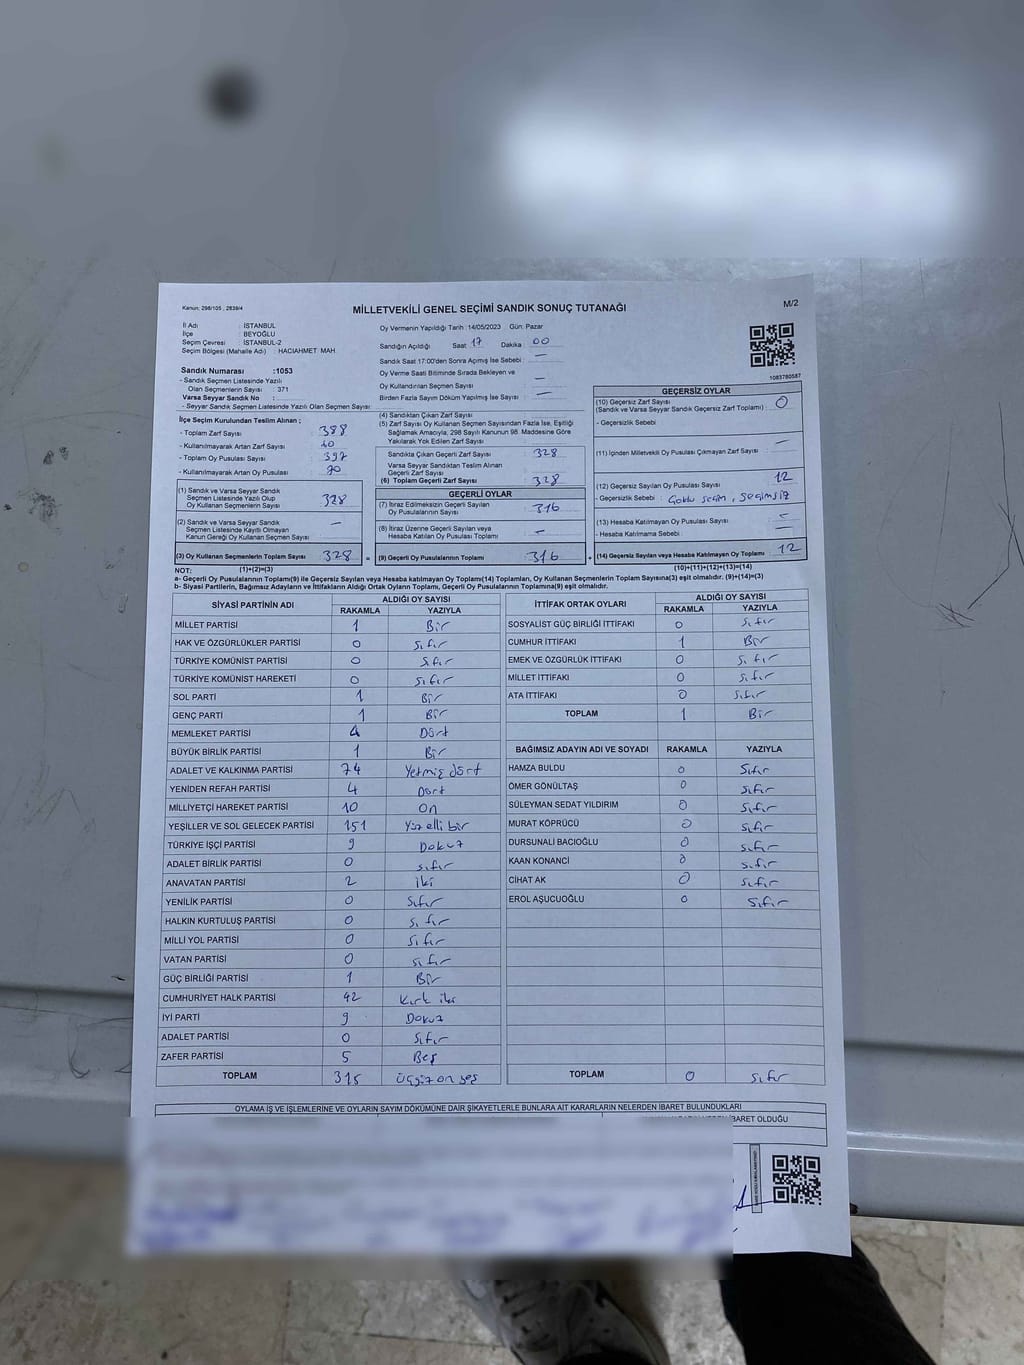 Kanun: 298/105 , 2839/4
MİLLETVEKİLİ GENEL SEÇİMİ SANDIK SONUÇ TUTANAĞI
M/2
İl Adı : İSTANBUL
İlçe BEYOĞLU
Seçim Çevresi : İSTANBUL-2
Seçim Bölgesi (Mahalle Adı) : HACIAHMET MAH
Oy Vermenin Yapıldığı Tarih :14/05/2023 Gün: Pazar
Sandığın Açıldığı Saat 17 Dakika 00
Sandık Saat 17:00'den Sonra Açılmış İse Sebebi : —
Oy Verme Saati Bitiminde Sırada Bekleyen ve
Oy Kullandırılan Seçmen Sayısı —
Birden Fazla Sayım Döküm Yapılmış İse Sayısı : —
1083780587
Sandık Numarası :1053
- Sandık Seçmen Listesinde Yazılı
Olan Seçmenlerin Sayısı : 371
Varsa Seyyar Sandık No :
- Seyyar Sandık Seçmen Listesinde Yazılı Olan Seçmen Sayısı:
İlçe Seçim Kurulundan Teslim Alınan ;
- Toplam Zarf Sayısı : 388
- Kullanılmayarak Artan Zarf Sayısı :
- Toplam Oy Pusulası Sayısı : 397
- Kullanılmayarak Artan Oy Pusulası
(1) Sandık ve Varsa Seyyar Sandık
Seçmen Listesinde Yazılı Olup
Oy Kullanan Seçmenlerin Sayısı 328
(2) Sandık ve Varsa Seyyar Sandık
Seçmen Listesinde Kayıtlı Olmayan
Kanun Gereği Oy Kullanan Seçmen Sayısı : —
(3) Oy Kullanan Seçmenlerin Toplam Sayısı 328 =
(4) Sandıktan Çıkan Zarf Sayısı :
(5) Zarf Sayısı Oy Kullanan Seçmen Sayısından Fazla İse, Eşitliği
Sağlamak Amacıyla, 298 Sayılı Kanunun 98. Maddesine Göre
Yakılarak Yok Edilen Zarf Sayısı :
Sandıkta Çıkan Geçerli Zarf Sayısı : 328
Varsa Seyyar Sandıktan Teslim Alınan
Geçerli Zarf Sayısı :
(6) Toplam Geçerli Zarf Sayısı : 328
GEÇERLİ OYLAR
(7) İtiraz Edilmeksizin Geçerli Sayılan
Oy Pusulalarının Sayısı : 316
(8) İtiraz Üzerine Geçerli Sayılan veya
Hesaba Katılan Oy Pusulası Toplamı : —
(9) Geçerli Oy Pusulalarının Toplamı 316 +
GEÇERSİZ OYLAR
(10) Geçersiz Zarf Sayısı 0
(Sandık ve Varsa Seyyar Sandık Geçersiz Zarf Toplamı) :
- Geçersizlik Sebebi :
(11) İçinden Milletvekili Oy Pusulası Çıkmayan Zarf Sayısı : —
(12) Geçersiz Sayılan Oy Pusulası Sayısı : 12
- Geçersizlik Sebebi : Çoklu seçim, seçimsiz
(13) Hesaba Katılmayan Oy Pusulası Sayısı : —
- Hesaba Katılmama Sebebi : —
(14) Geçersiz Sayılan veya Hesaba Katılmayan Oy Toplamı 12
NOT: (1)+(2)=(3) (10)+(11)+(12)+(13)=(14)
a- Geçerli Oy Pusulalarının Toplamı(9) ile Geçersiz Sayılan veya Hesaba katılmayan Oy Toplamı(14) Toplamları, Oy Kullanan Seçmenlerin Toplam Sayısına(3) eşit olmalıdır. (9)+(14)=(3)
b- Siyasi Partilerin, Bağımsız Adayların ve İttifakların Aldığı Ortak Oyların Toplamı, Geçerli Oy Pusulalarının Toplamına(9) eşit olmalıdır.
SİYASİ PARTİNİN ADI ALDIĞI OY SAYISI
RAKAMLA YAZIYLA
MİLLET PARTİSİ 1 Bir
HAK VE ÖZGÜRLÜKLER PARTİSİ 0 Sıfır
TÜRKİYE KOMÜNİST PARTİSİ 0 Sıfır
TÜRKİYE KOMÜNİST HAREKETİ 0 Sıfır
SOL PARTİ 1 Bir
GENÇ PARTİ 1 Bir
MEMLEKET PARTİSİ 4 Dört
BÜYÜK BİRLİK PARTİSİ 1 Bir
ADALET VE KALKINMA PARTİSİ 74 Yetmiş dört
YENİDEN REFAH PARTİSİ 4 Dört
MİLLİYETÇİ HAREKET PARTİSİ 10 On
YEŞİLLER VE SOL GELECEK PARTİSİ 151 Yüz elli bir
TÜRKİYE İŞÇİ PARTİSİ 9 Dokuz
ADALET BİRLİK PARTİSİ 0 Sıfır
ANAVATAN PARTİSİ 2 iki
YENİLİK PARTİSİ 0 Sıfır
HALKIN KURTULUŞ PARTİSİ 0 Sıfır
MİLLİ YOL PARTİSİ 0 Sıfır
VATAN PARTİSİ 0 Sıfır
GÜÇ BİRLİĞİ PARTİSİ 1 Bir
CUMHURİYET HALK PARTİSİ 42 Kırk iki
İYİ PARTİ 9 Dokuz
ADALET PARTİSİ 0 Sıfır
ZAFER PARTİSİ 5 Beş
TOPLAM 315 üçyüz on beş
İTTİFAK ORTAK OYLARI ALDIĞI OY SAYISI
RAKAMLA YAZIYLA
SOSYALİST GÜÇ BİRLİĞİ İTTİFAKI 0 Sıfır
CUMHUR İTTİFAKI 1 Bir
EMEK VE ÖZGÜRLÜK İTTİFAKI 0 Sıfır
MİLLET İTTİFAKI 0 Sıfır
ATA İTTİFAKI 0 Sıfır
TOPLAM 1 Bir
BAĞIMSIZ ADAYIN ADI VE SOYADI RAKAMLA YAZIYLA
HAMZA BULDU 0 Sıfır
ÖMER GÖNÜLTAŞ 0 Sıfır
SÜLEYMAN SEDAT YILDIRIM 0 Sıfır
MURAT KÖPRÜCÜ 0 Sıfır
DURSUNALİ BACIOĞLU 0 Sıfır
KAAN KONANCİ 0 Sıfır
CİHAT AK 0 Sıfır
EROL AŞUCUOĞLU 0 Sıfır
TOPLAM 0 Sıfır
OYLAMA İŞ VE İŞLEMLERİNE VE OYLARIN SAYIM DÖKÜMÜNE DAİR ŞİKAYETLERLE BUNLARA AİT KARARLARIN NELERDEN İBARET BULUNDUKLARI
İBARET OLDUĞU